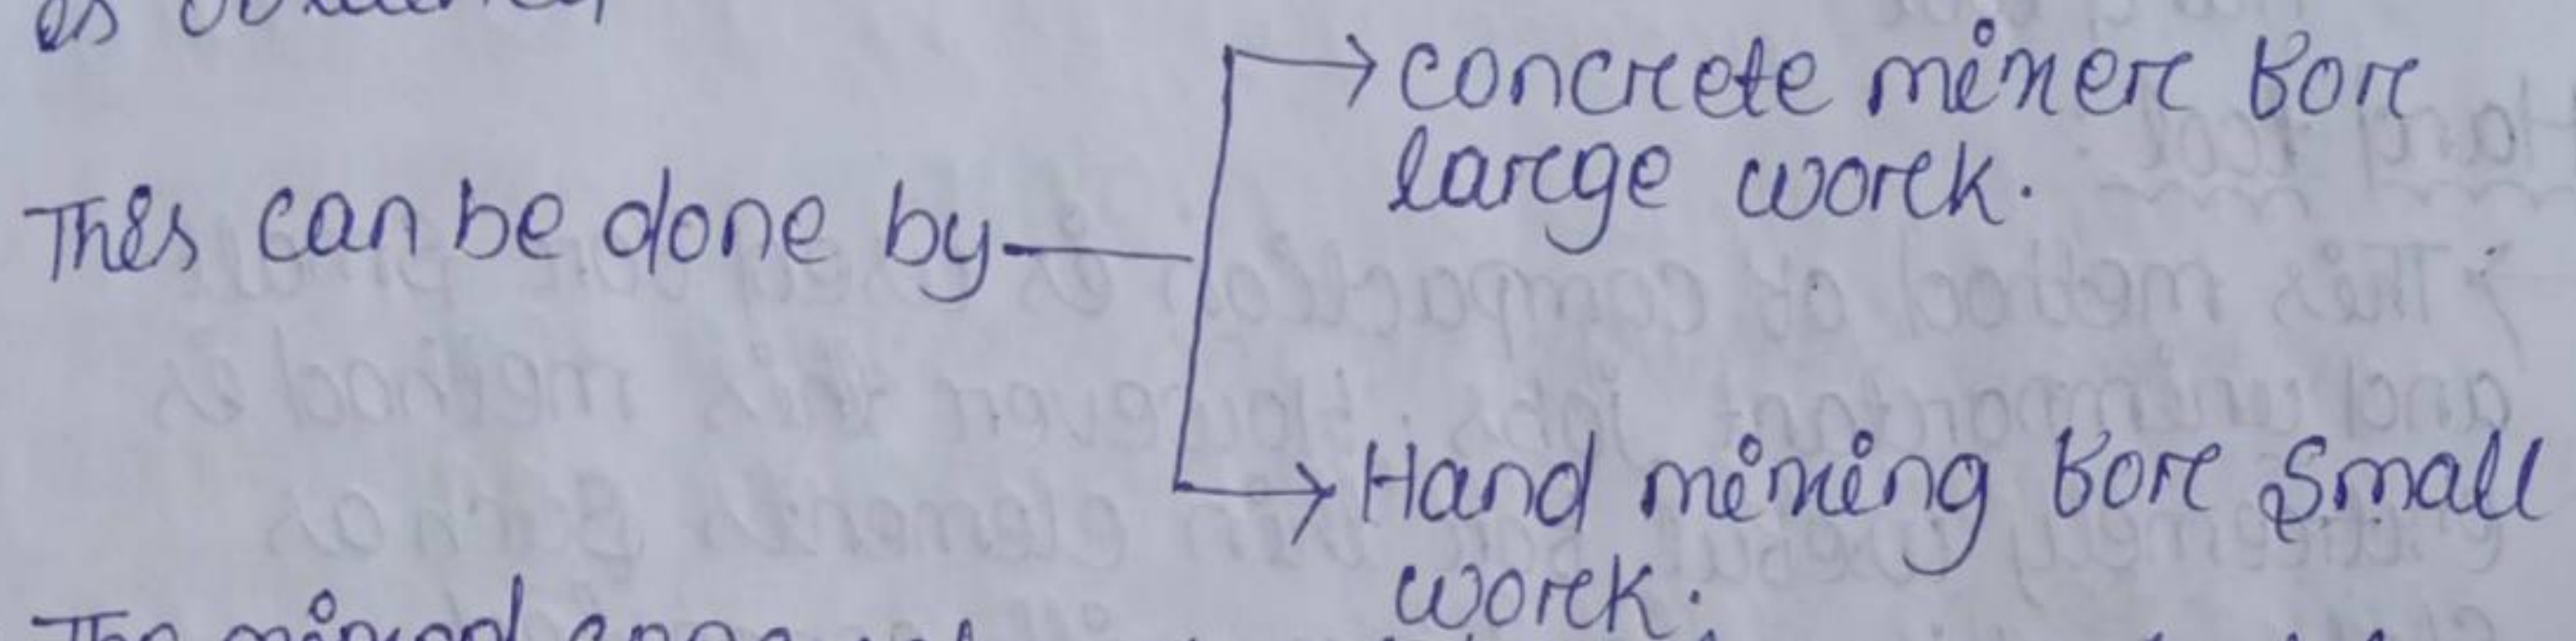 This can be done by
→ concrete mixer for
large work.
→ Hand mixing for small
work.
The mixed